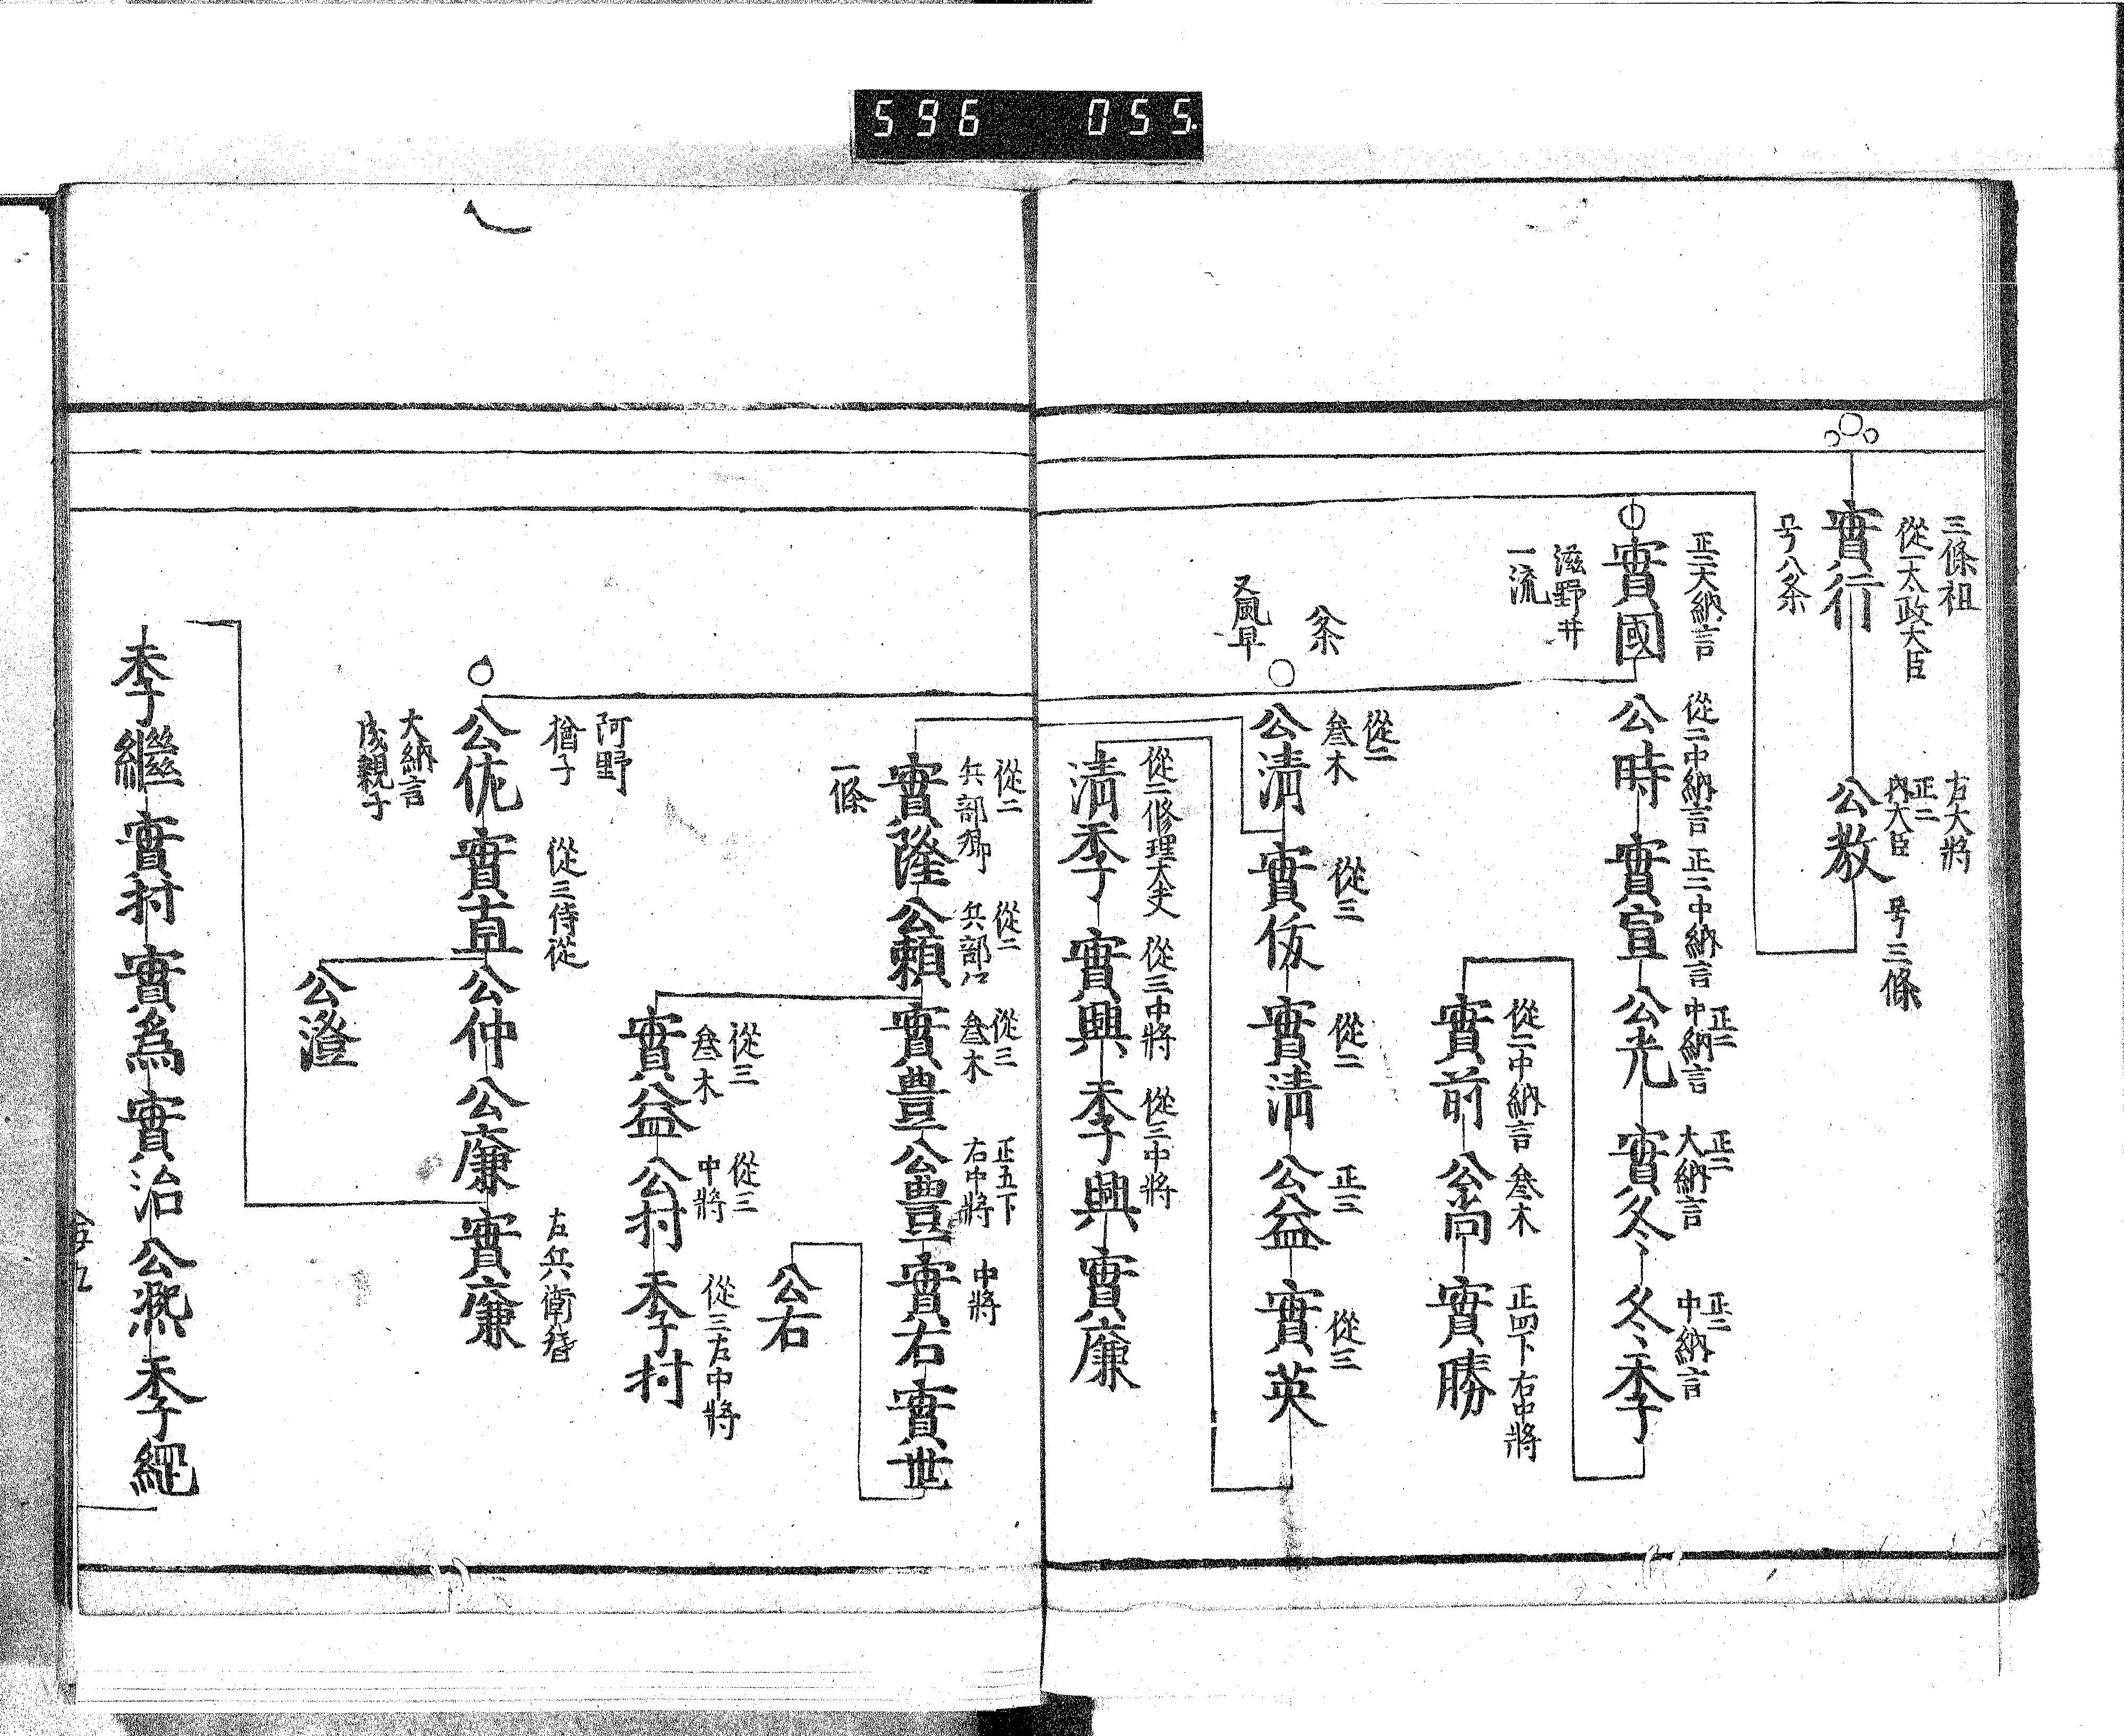 596 055.
三條祖
從一太政大臣
實行
号八条
右大將
正二
內大臣
公教
号三條
正二大納言
實國
滋野井
一流
從二中納言
公時
正二中納言
實宣
正二
中納言
公光
正二
大納言
實冬
正二
中納言
冬季
從二中納言
實前
叁木
公尚
正四下右中將
實勝
又風早
從二
叁木
公清
從三
實俊
從二
實清
正三
公益
從三
實英
從二修理大夫
清季
從三中將
實興
從三中將
季興
實廉
從二
兵部卿
實隆
一條
從二
兵部
公賴
從三
叁木
實豊
正五下
右中將
公豊
中將
實右
實世
公右
從三
叁木
實益
從三
中將
公村
從三右中將
季村
阿野
猶子
公佐
大納言
成親子
從三侍從
實直
公仲
公廉
左兵衛督
實廉
公澄
季繼
實村
實爲
實治
公熙
季繩